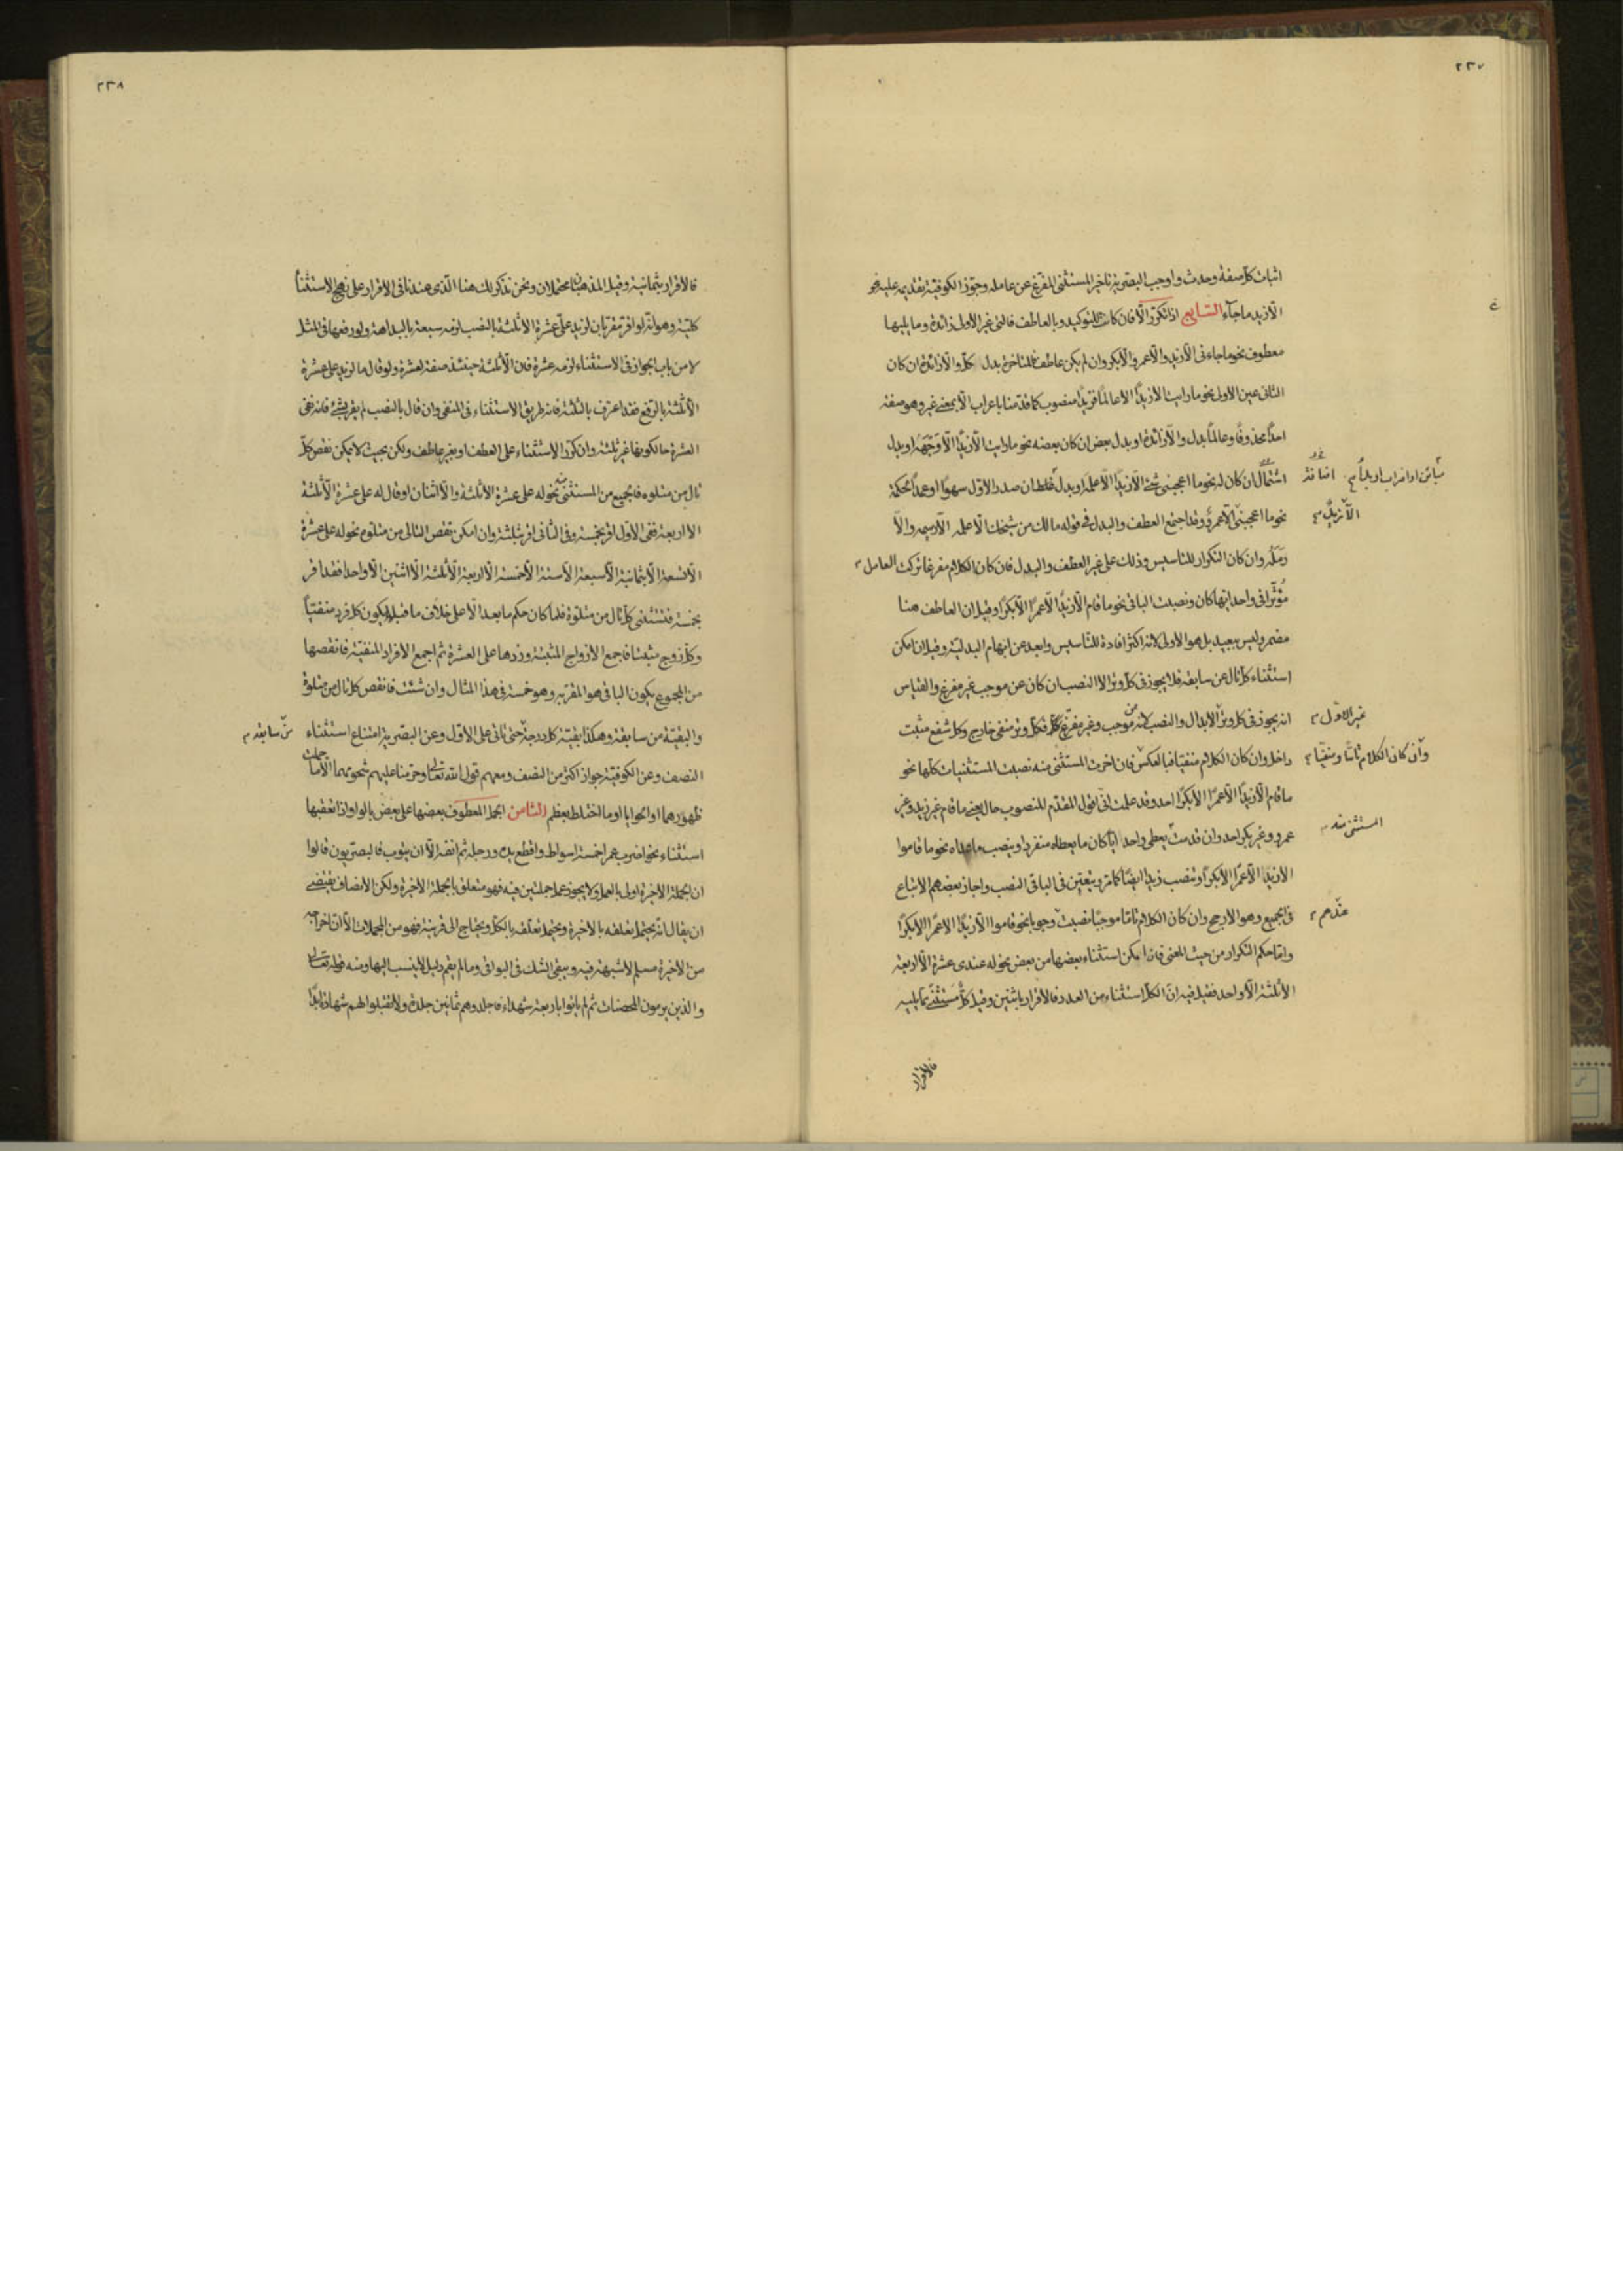 ٢٣٧
اثبات كل صفة وحدث واوجب البصرية تأخير المستثنى المفرغ عن عامله وجوّز الكوفية تقديمه عليه نحو
الّا زيد ما جآء السّابع اذا تكرّر الّا فان كانت للتوكيد وبالعاطف فالتى غير الاولى زائدة وما يليها
معطوف نحو ما جاءنى الّا زيد والّا عمرو والّا بكر وان لم يكن عاطف فالمتأخرة بدل كلّ والّا زائدة ان كان
الثانى عين الاول نحو ما رايت الّا زيدًا الّا عالمًا فزيدًا منصوب كما قدّمنا باعراب الّا بمعنى غير وهو صفة
احدًا محذوفًا وعالمًا بدل والّا زائدة او بدل بعض ان كان بعضه نحو ما رايت الّا زيدًا الّا وجهه او بدل
اشتمال ان كان له نحو ما اعجبنى شئ الّا زيدًا الّا علمه او بدل غلط ان صدر الاوّل سهوًا او عمدًا لحكمة
الّا زيدٌ
نحو ما اعجبنى الّا عمرو وقد اجتمع العطف والبدل فى قوله مالك من شيخك الّا عمله الّا رسيمه والّا
رمله وان كان التكرار للتاسيس وذلك على غير العطف والبدل فان كان الكلام مفرغا تركت العامل
مؤثرا فى واحد ايها كان ونصبت الباقى نحو ما قام الّا زيدٌ الّا عمرًا الّا بكرًا وقيل ان العاطف هنا
مضمر وليس ببعيد بل هو الاولى لانه اكثر افادة للتاسيس وابعد عن ابهام البدلية وقيل ان امكن
استثناء كل تال عن سابقه فلا يجوز فى كل وتر الّا النصب ان كان عن موجب غير مفرغ والقياس
غير الاوّل
انه يجوز فى كل وتر الابدال والنصب لانه عن موجب وغير مفرّغ فكل وتر منفى خارج وكل شفع مثبت
وان كان الكلام تامًّا ومنفيًّا
داخل وان كان الكلام منفيًا فبالعكس فان اخرت المستثنى منه نصبت المستثنيات كلها نحو
ما قام الّا زيدًا الّا عمرًا الّا بكرًا احد وقد علمت انى اقول المقدّم المنصوب حال يعنى ما قام غير زيد وغير
المستثنى منه
عمرو وغير بكر احد وان قدمت يعطى واحد ايًّا كان ما يعطاه منفردا وينصب ما عداه نحو ما قاموا
الّا زيدًا الّا عمرًا الّا بكرًا وتنصب زيدًا ايضًا كما مرّ ويتعيّن فى الباقى النصب واجاز بعضهم الاتباع
عندهم
فى الجميع وهو الارجح وان كان الكلام تامًّا موجبًا نصبت وجوبا نحو قاموا الّا زيدًا الّا عمرًا الّا بكرًا
وامّا حكم التكرار من حيث المعنى فان امكن استثناء بعضها من بعض نحو له عندى عشرة الّا اربعة
الّا ثلثة الّا واحد فقيل فيه انّ الكل استثناء من العدد فالاقرار باثنين وقيل كلٌّ مستثنى مما يليه
فالاقرار
٢٣٨
فالاقرار بثمانية وقيل المذهبان محتملان ونحن نذكر لك هنا الّذى عندنا فى الاقرار على نهج الاستثناء
كلية وهو انّه لو اقر مقر بان لزيد علىّ عشرة الّا ثلثة بالنصب لزمه سبعة بالبداهة ولو رفعها فى المثل
لا من باب الجواز فى الاستثناء لزمه عشرة فان الّا ثلثة حينئذ صفة لعشرة ولو قال ما لزيد على عشرة
الّا ثلثة بالرفع فقد اعترف بالثلثة فانه طريق الاستثناء فى المنفى وان قال بالنصب لم يقر بشئ فانه نفى
العشرة حالكونها غير ثلثة وان كرّر الاستثناء على العطف او بغير عاطف ولكن بحيث لا يمكن نقص كلّ
تال من متلوه فالجميع من المستثنى منه نحو له على عشرة الّا ثلثة والّا اثنان او قال له على عشرة الّا ثلثة
الّا اربعة ففى الاوّل اقر بخمسة وفى الثانى اقر بثلثة وان امكن نقص التالى من متلوه نحو له على عشرة
الّا تسعة الّا ثمانية الّا سبعة الّا ستة الّا خمسة الّا اربعة الّا ثلثة الّا اثنين الّا واحدا فقد اقر
بخمسة فتستثنى كل تال من متلوه فلما كان حكم ما بعد الّا على خلاف ما قبلها يكون كل فرد منفيًّا
وكل زوج مثبتا فاجمع الازواج المثبتة وزدها على العشرة ثم اجمع الافراد المنفيّة فانقصها
من المجموع يكون الباقى هو المقر به وهو خمسة فى هذا المثال وان شئت فانقص كل تال من متلوة
والبقيّة من سابقه وهكذا بقيّة كل درجة حتى تاتى على الاوّل وعن البصرية امتناع استثناء
من سابقه
النصف وعن الكوفية جواز اكثر من النصف ومعهم قول الله تعالى وحرمنا عليهم شحومهما الّا ما حملت
ظهورهما او الحوايا او ما اختلط بعظم الثامن الجمل المعطوف بعضها على بعض بالواو اذا تعقبها
استثناء نحو اضرب عمرا خمسة اسواط واقطع يده ورجله ثم انفه الّا ان يتوب فالبصريون قالوا
ان الجملة الاخيرة اولى بالعمل ولا يجوز عمل جملتين فيه فهو متعلق بالجملة الاخيرة ولكن الانصاف يقتضى
ان يقال انّه يحتمل تعلقه بالاخيرة ويحتمل تعلقه بالكل ويحتاج الى قرينة فهو من المجملات الّا ان اخراجه
من الاخيرة مسلم لا شبهة فيه ويبقى الشك فى البواقى وما لم يقم دليل لا ينسب اليها ومنه قوله تعالى
والذين يرمون المحصنات ثم لم ياتوا باربعة شهداء فاجلدوهم ثمانين جلدة ولا تقبلوا لهم شهادة ابدًا